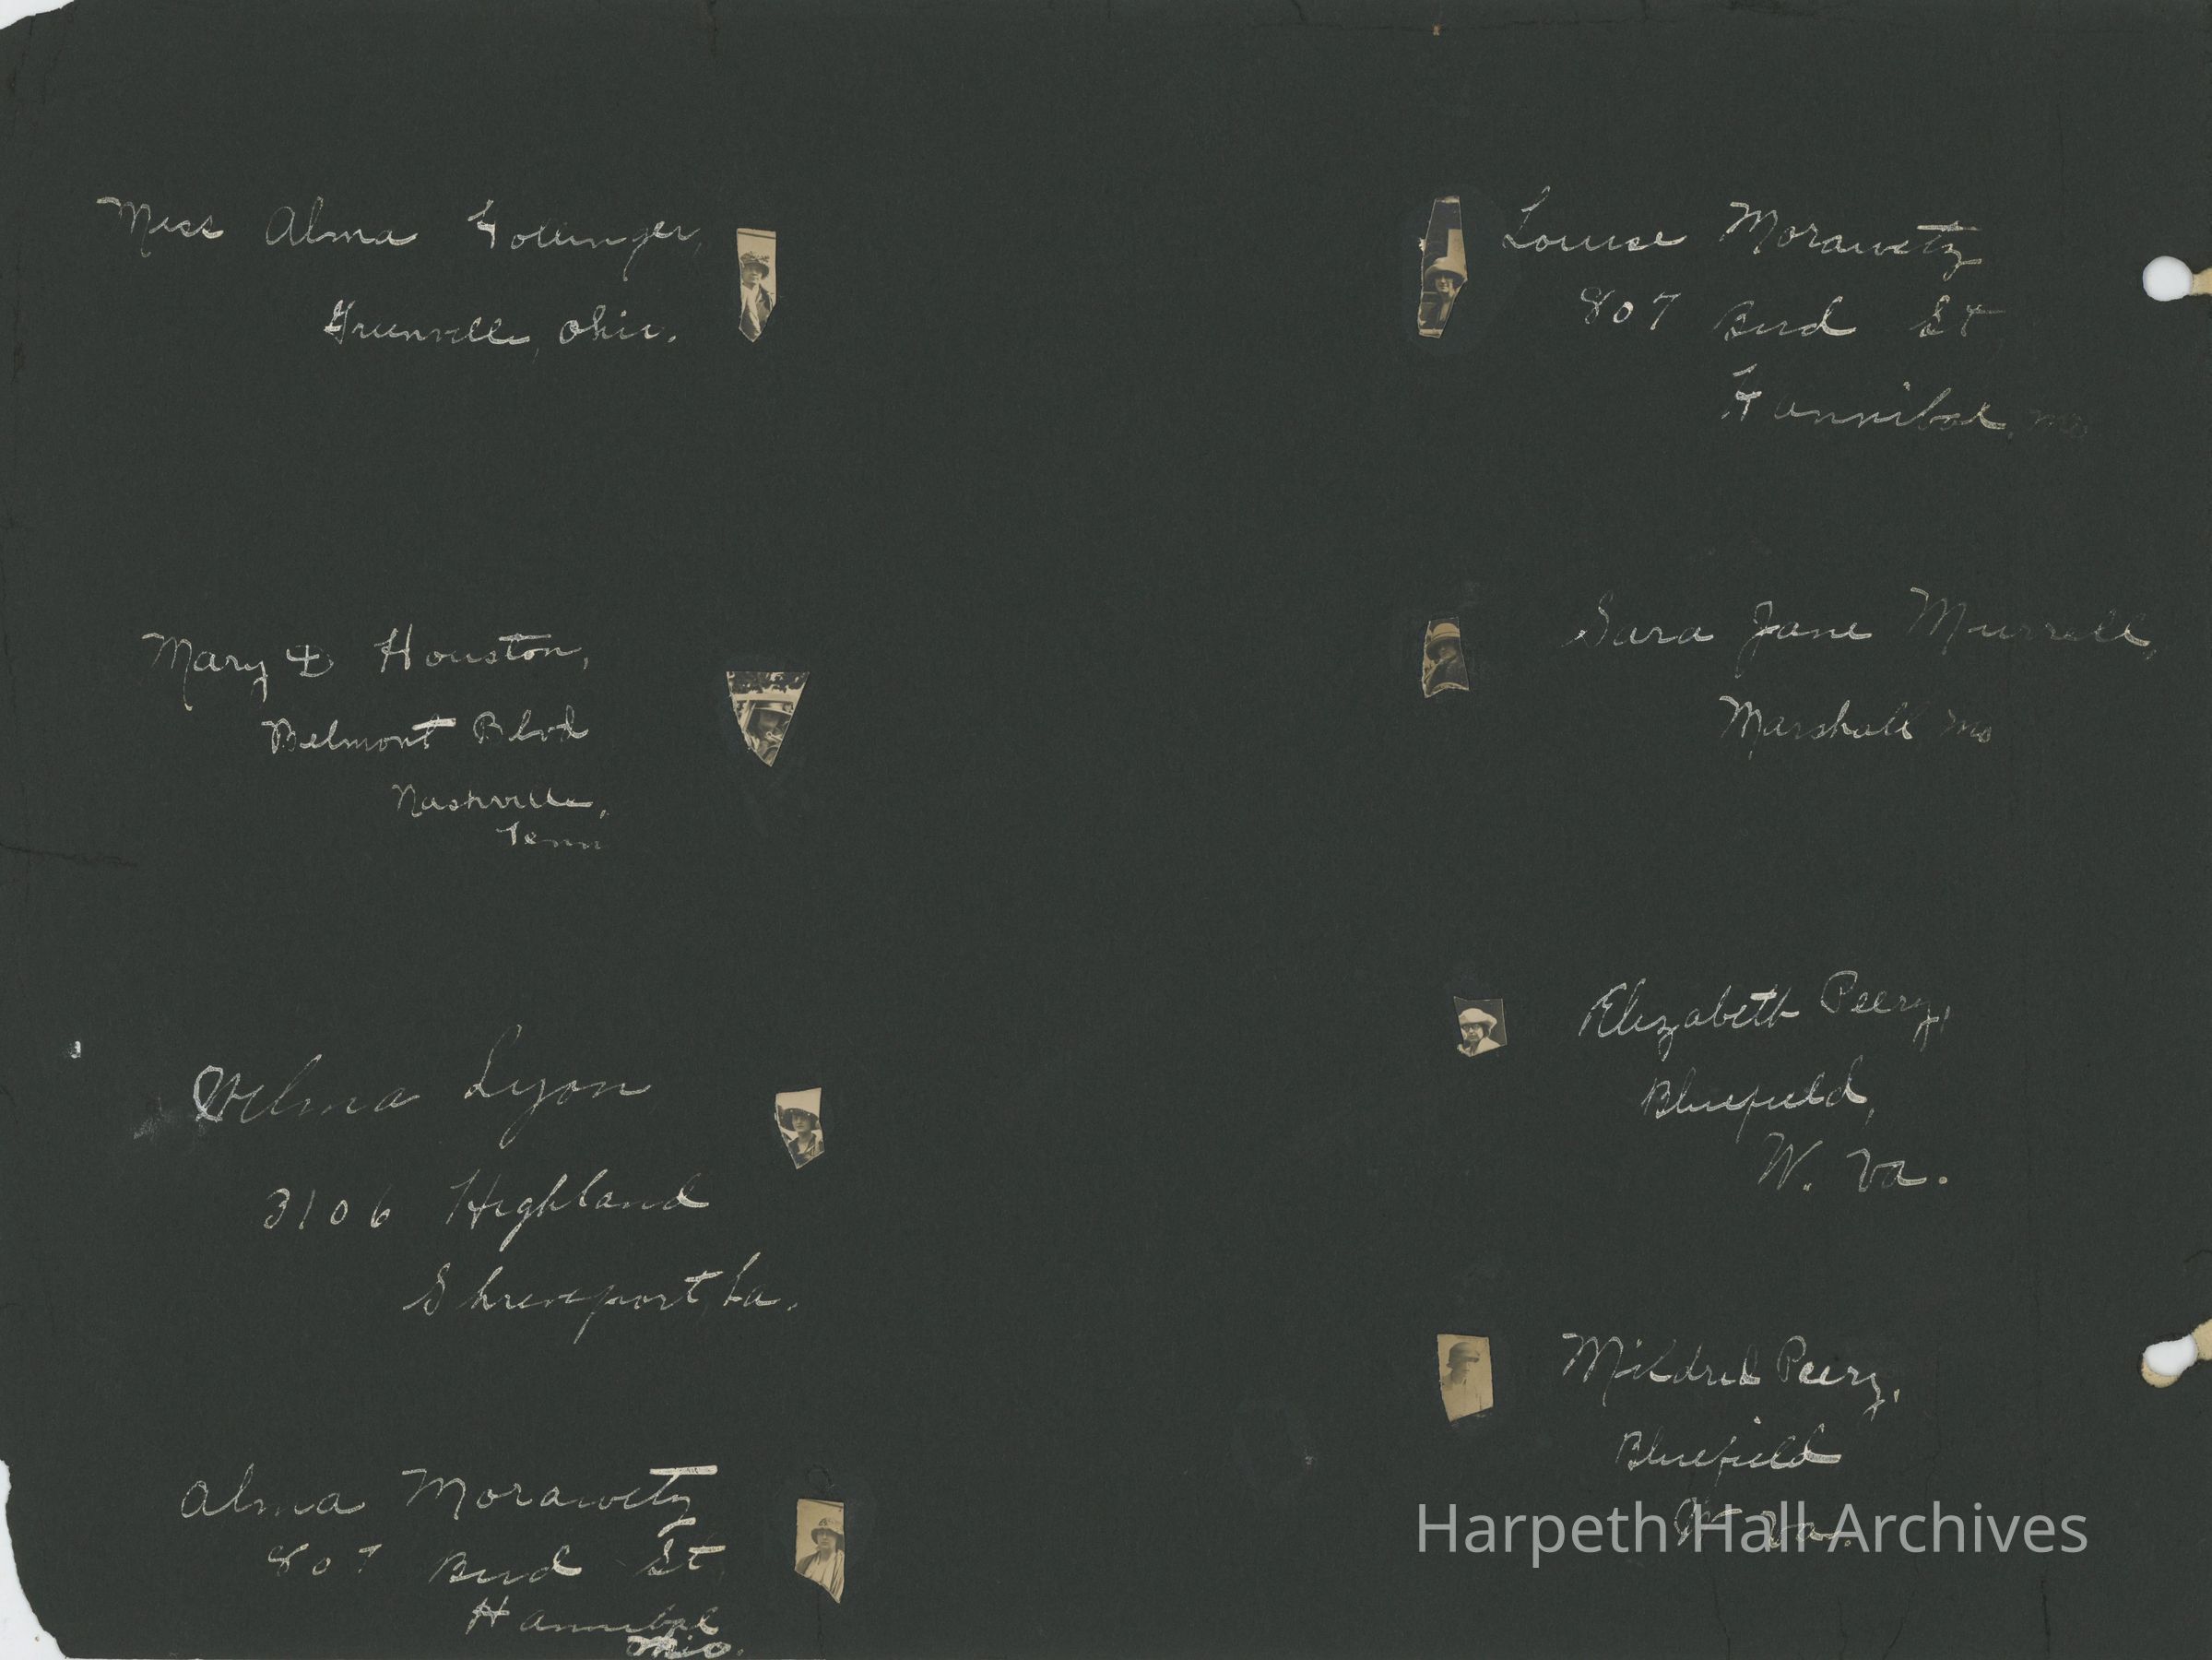 Miss Alma Gollinger,
Greenville, Ohio.
Mary D Houston,
Belmont Blvd
Nashville,
Tenn
Velma Lyon
3106 Highland
Shreveport, La.
Alma Morawetz
807 Bird St,
Hannibal
Louise Morawetz
807 Bird St
Hannibal, Mo
Sara Jane Murrell,
Marshall Mo
Elizabeth Peery,
Bluefield,
W. Va.
Mildred Peery,
Bluefield
W. Va.
Harpeth Hall Archives